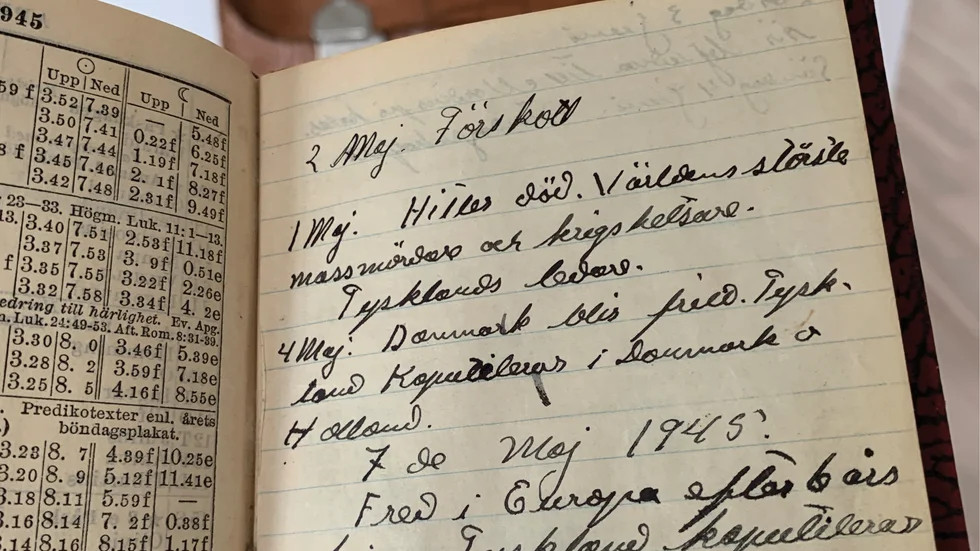 1945
Upp Ned Upp Ned
59 f 3.52 7.39 — 5.48f
3.50 7.41 0.22f 6.25f
3.47 7.44 1.19f 7.18f
8 f 3.45 7.46 2. 1f 8.27f
3.42 7.48 2.31f 9.49f
23—33. Högm. Luk. 11: 1—13.
13. 3.40 7.51 2.53f 11.18f
3.37 7.53 3. 9f 0.51e
f 3.35 7.55 3.22f 2.26e
3.32 7.58 3.34f 4. 2e
edring till härlighet. Ev. Apg.
n. Luk. 24: 49-53. Aft. Rom. 8: 31-39.
3.30 8. 0 3.46f 5.39e
3.28 8. 2 3.59f 7.18e
3.25 8. 5 4.16f 8.55e
Predikotexter enl. årets
böndagsplakat.
3.23 8. 7 4.39f 10.25e
3.20 8. 9 5.12f 11.41e
3.18 8.11 5.59f —
3.16 8.14 7. 2f 0.38f
3.14 8.16 8.15f 1.17f
2 Maj. Förskott
1 Maj. Hitler död. Världens störste
massmördare och krigshetsare.
Tysklands ledare.
4 Maj. Danmark blir fritt. Tysk-
land Kaputilerar i Danmark o
Holland.
7 de Maj 1945.
Fred i Europa efter 6 års
Tyskland kaputilerar